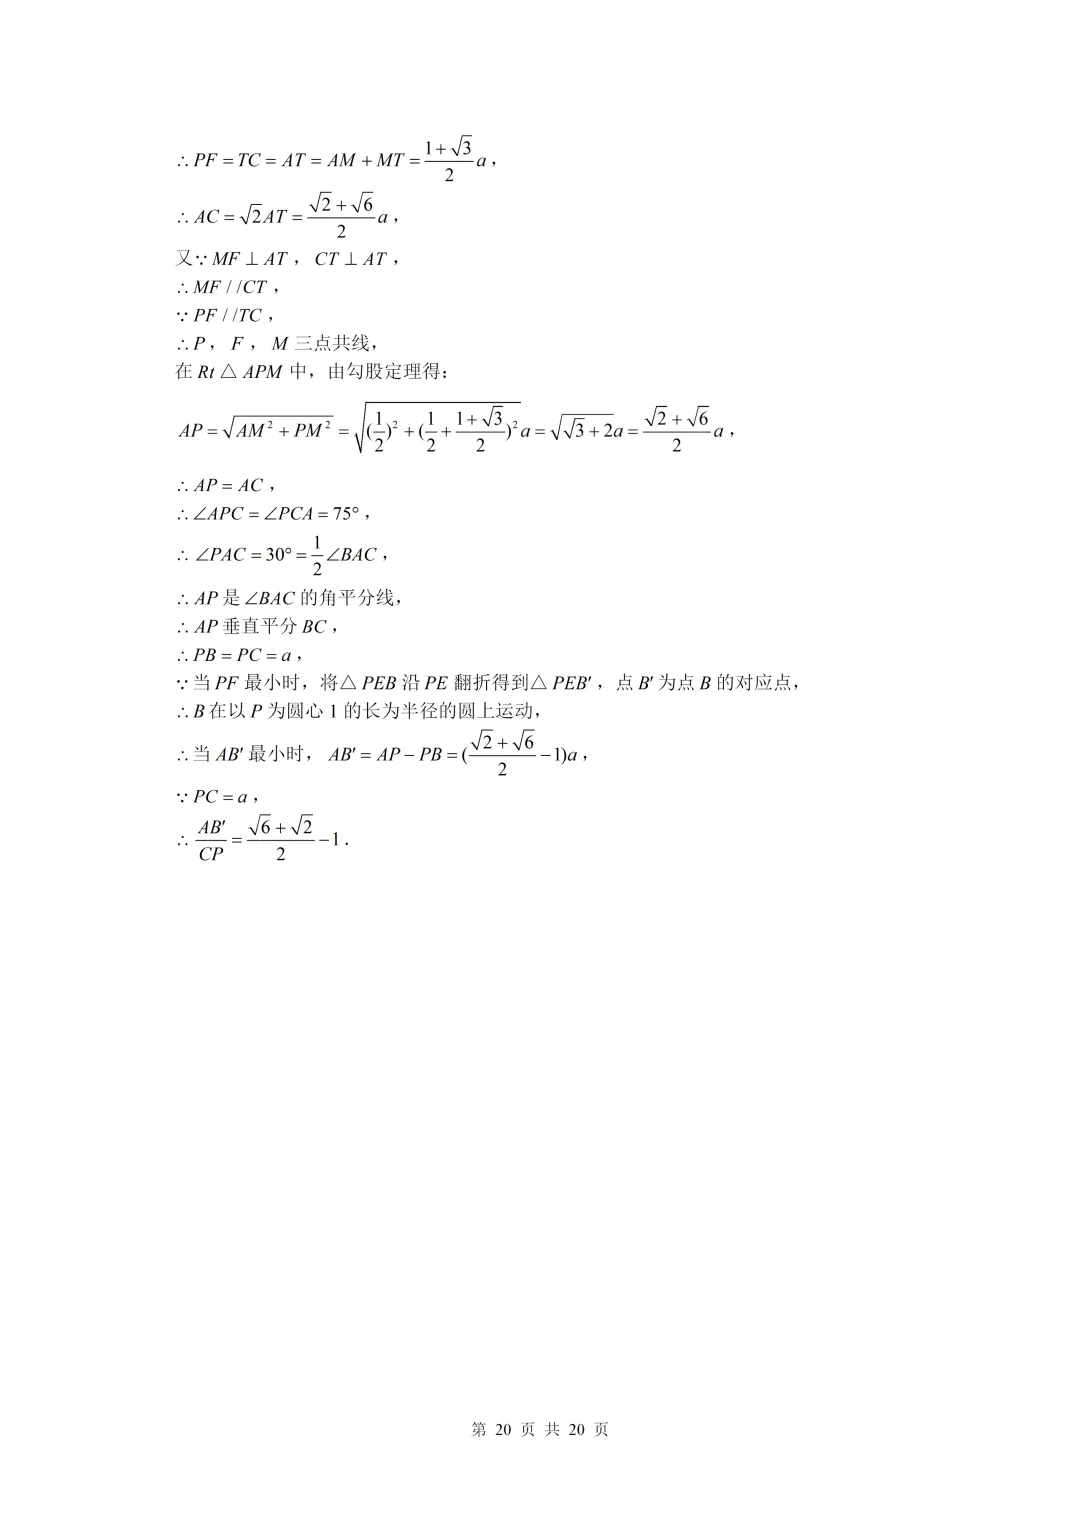 ∴PF = TC = AT = AM + MT = \frac{1+\sqrt{3}}{2}a，
∴AC = \sqrt{2}AT = \frac{\sqrt{2}+\sqrt{6}}{2}a，
又∵MF ⊥ AT，CT ⊥ AT，
∴MF / /CT，
∵PF / /TC，
∴P，F，M 三点共线，
在 Rt△APM 中，由勾股定理得：
AP = \sqrt{AM^2 + PM^2} = \sqrt{(\frac{1}{2})^2 + (\frac{1}{2} + \frac{1+\sqrt{3}}{2})^2}a = \sqrt{\sqrt{3}+2}a = \frac{\sqrt{2}+\sqrt{6}}{2}a，
∴AP = AC，
∴∠APC = ∠PCA = 75°，
∴∠PAC = 30° = \frac{1}{2}∠BAC，
∴AP 是∠BAC 的角平分线，
∴AP 垂直平分 BC，
∴PB = PC = a，
∵当 PF 最小时，将△PEB 沿 PE 翻折得到△PEB′，点 B′ 为点 B 的对应点，
∴B 在以 P 为圆心 1 的长为半径的圆上运动，
∴当 AB′ 最小时，AB′ = AP − PB = (\frac{\sqrt{2}+\sqrt{6}}{2} − 1)a，
∵PC = a，
∴\frac{AB′}{CP} = \frac{\sqrt{6}+\sqrt{2}}{2} − 1．
第 20 页 共 20 页